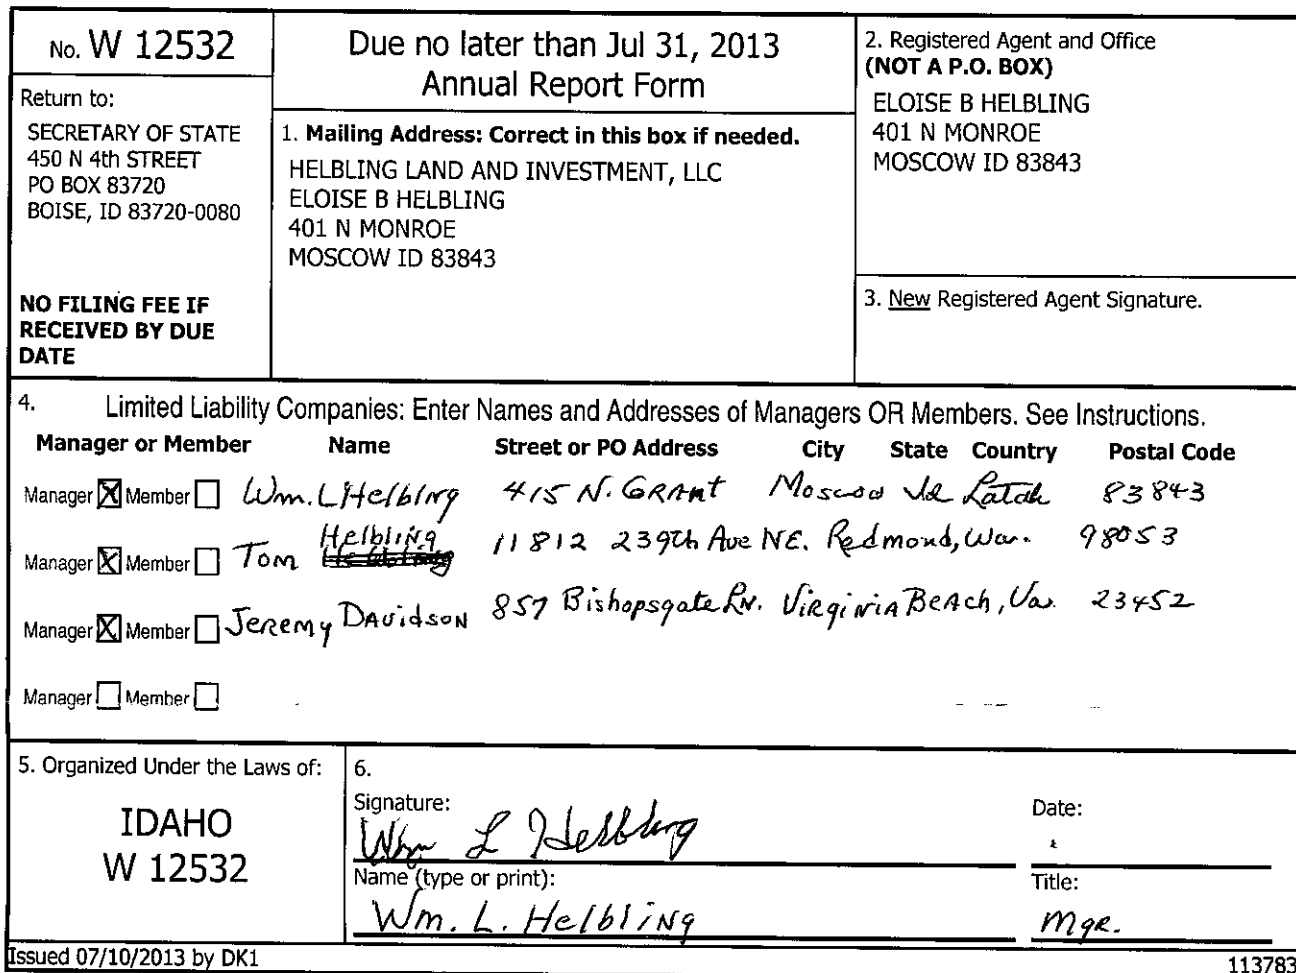 No. W 12532
Return to:
SECRETARY OF STATE
450 N 4th STREET
PO BOX 83720
BOISE, ID 83720-0080
NO FILING FEE IF
RECEIVED BY DUE
DATE
Due no later than Jul 31, 2013
Annual Report Form
1. Mailing Address: Correct in this box if needed.
HELBLING LAND AND INVESTMENT, LLC
ELOISE B HELBLING
401 N MONROE
MOSCOW ID 83843
2. Registered Agent and Office
(NOT A P.O. BOX)
ELOISE B HELBLING
401 N MONROE
MOSCOW ID 83843
3. New Registered Agent Signature.
4. Limited Liability Companies: Enter Names and Addresses of Managers OR Members. See Instructions.
Manager or Member Name Street or PO Address City State Country Postal Code
Manager Member Wm. L Helbling 415 N. GRANT Moscow Id Latah 83843
Manager Member Tom Helbling 11812 239th Ave NE. Redmond, Wa. 98053
Manager Member Jeremy Davidson 857 Bishopsgate Ln. Virginia Beach, Va. 23452
Manager Member
5. Organized Under the Laws of:
IDAHO
W 12532
6.
Signature:
Wm L Helbling
Name (type or print):
Wm. L. Helbling
Date:
Title:
Mgr.
Issued 07/10/2013 by DK1
113783